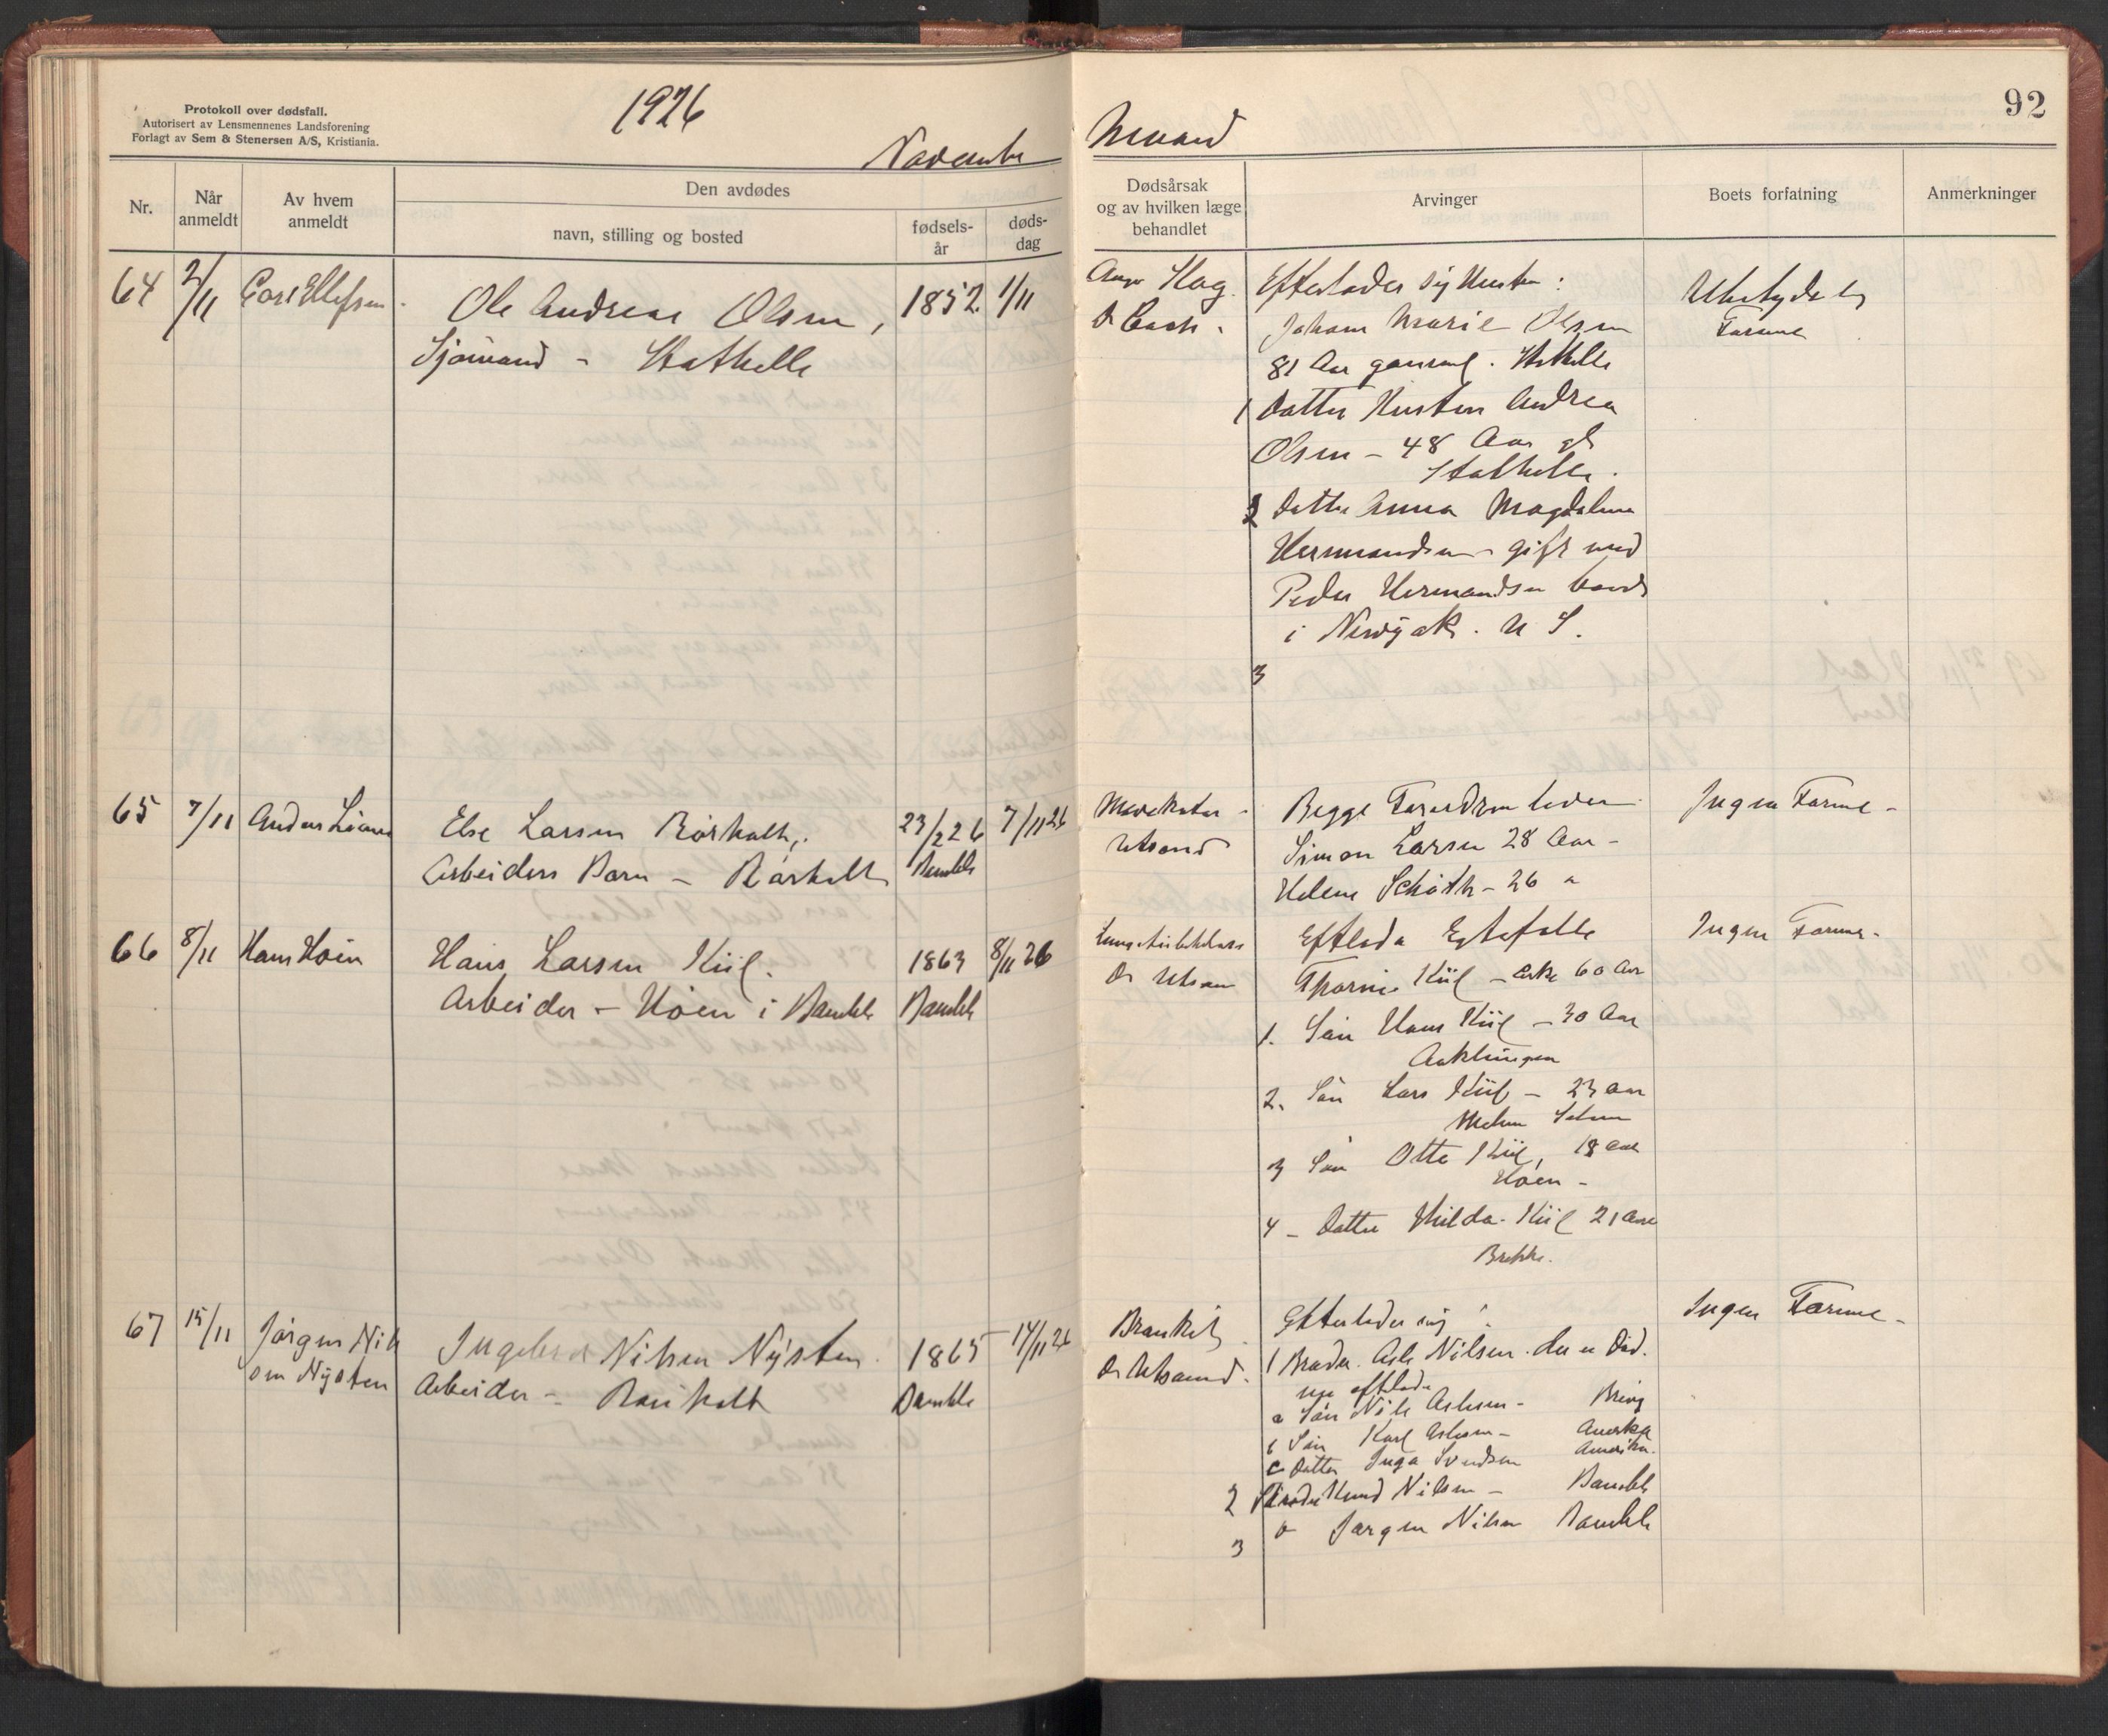 Protokoll over dødsfall.
Autorisert av Lensmennenes Landsforening
Forlagt av Sem & Stenersen A/S, Kristiania.
1926
November
Nr.
Når anmeldt
Av hvem anmeldt
Den avdødes
navn, stilling og bosted
fødsels-år
døds-dag
64 2/11 Carl Ellefsen
Ole Andreas Olsen,
1852 1/11
Sjømand - Stathelle
65 7/11 Anders
Else Larsen Rørholt,
23/2 26 7/11 26
Arbeiders Barn - Rørholt
Bamble
66 8/11 Hans Hoen
Hans Larsen Kiil.
1863 8/11 26
Arbeider - Hoen i Bamble
Bamble
67 15/11 Jørgen Nil
sen Nysten
Nilsen Nysten
1865 14/11 26
Arbeider -
Bamble
Maaned
92
Dødsårsak
og av hvilken læge
behandlet
Arvinger
Boets forfatning
Anmerkninger
Slag.
Dr
Efterlader sig Hustru:
Marie Olsen
81 Aar gammel. Stathelle
1 Datter Andrea
Olsen - 48 Aar gl
Stathelle.
2 Datter Anna Magdalena
Hermandsen - gift med
Peder Hermandsen
i Newyork. U S.
3
Ubetydelig
Formue
Begge Forældre lever
Simon Larsen 28 Aar -
Helene - 26 "
Ingen Formue -
Dr
Efterlader
Kiil - 60 Aar
1. Søn Hans Kiil - 30 Aar
2. Søn Lars Kiil - 23 Aar
3 Søn Otto Kiil, 18 Aar
Hoen -
4 - Datter Hilda Kiil 21 Aar
Brekke.
Ingen Formue.
Dr
Efterlader sig :
1 Broder Asle Nilsen. der er Død.
a Søn Nils Aslesen -
b Søn Karl Aslesen - Amerika
c Datter Inga Svendsen Amerika.
2 Broder Knud Nilsen - Bamble
3 " Jørgen Nilsen Bamble
Ingen Formue -